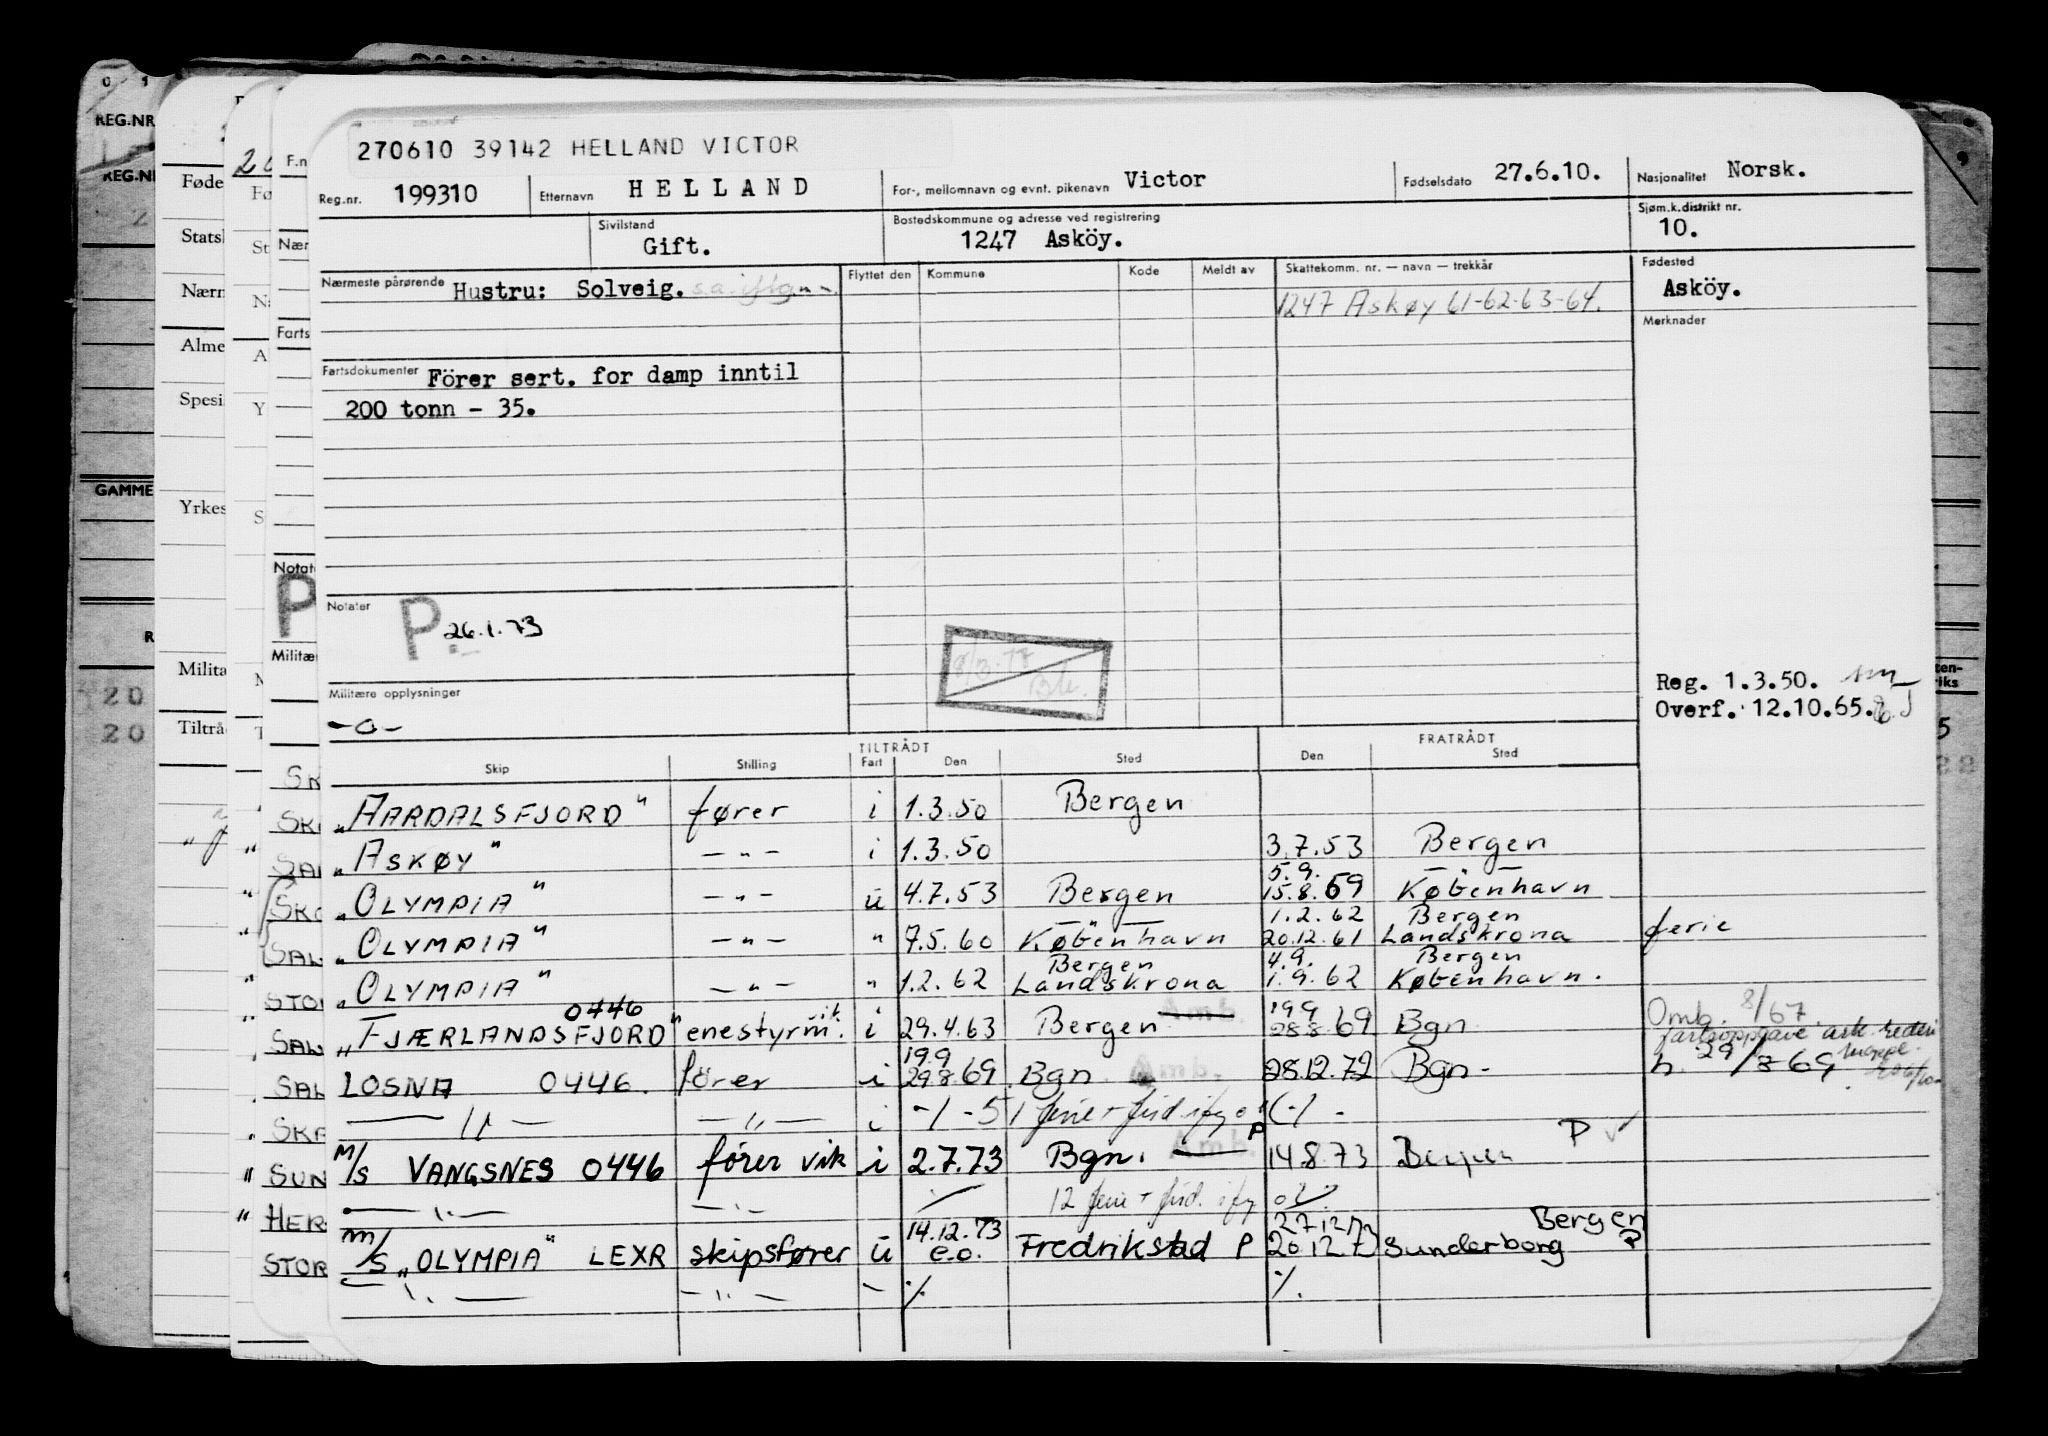 270610 39142 HELLAND VICTOR
Reg.nr. 199310 Etternavn HELLAND For-, mellomnavn og evnt. pikenavn Victor Fødselsdato 27.6.10. Nasjonalitet Norsk.
Sivilstand Gift. Bostedskommune og adresse ved registrering 1247 Asköy. Sjøm.k.distrikt nr. 10.
Nærmeste pårørende Hustru: Solveig. Flyttet den Kommune Kode Meldt av Skattekomm. nr. — navn — trekkår Fødested Asköy.
1247 Askøy 61-62-63-64.
Merknader
Fartsdokumenter Förer sert. for damp inntil
200 tonn - 35.
Notater P 26.1.73
Militære opplysninger
-o-
Reg. 1.3.50.
Overf. 12.10.65.
TILTRÅDT FRATRÅDT
Skip Stilling Fart Den Sted Den Sted
"AARDALSFJORD" fører i 1.3.50 Bergen
"ASKØY" -"- i 1.3.50 3.7.53 Bergen
5.9.
"OLYMPIA" -"- u 4.7.53 Bergen 15.8.59 København
1.2.62 Bergen
"OLYMPIA" -"- " 7.5.60 København 20.12.61 Landskrona ferie
Bergen 4.9. Bergen
"OLYMPIA" -"- " 1.2.62 Landskrona 1.9.62 København.
0446 vik 19.9
"FJÆRLANDSFJORD" enestyrm. i 29.4.63 Bergen Amb. 28.8.69 Bgn Omb. 8/67.
19.9
LOSNA 0446. förer i 29.8.69 Bgn Amb. 28.12.72 Bgn - h. 29/8 69
-"- -"- i
M/S VANGSNES 0446 fører vik i 2.7.73 Bgn. Amb. P 14.8.73 Bergen P
-"- -"- 12
14.12.73 Bergen
M/S "OLYMPIA" LEXR skipsfører u e.o. Fredrikstad P Sunderborg P
-"- -"- - ./. ./.
REG.NR
GAMME
Føde
Stats
Nærn
Alme
Spesi
Yrkes
Milita
Tiltrå
20
20
F.n
Nær
Farts
Notat
P
Militæ
STOR